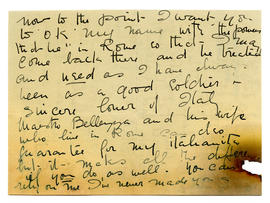 now to the point I want you
to "OK" my name with the powers
that be" in Rome so that I may
come back there and be treated
and used as I have always
been as a good soldier -
sincere lover of Italy
Maestro Bellezza and his wife
who live in Rome can also
guarantee for my Italianità
but it makes all the difference
if you do, as well. You can
rely on me I've never made you a